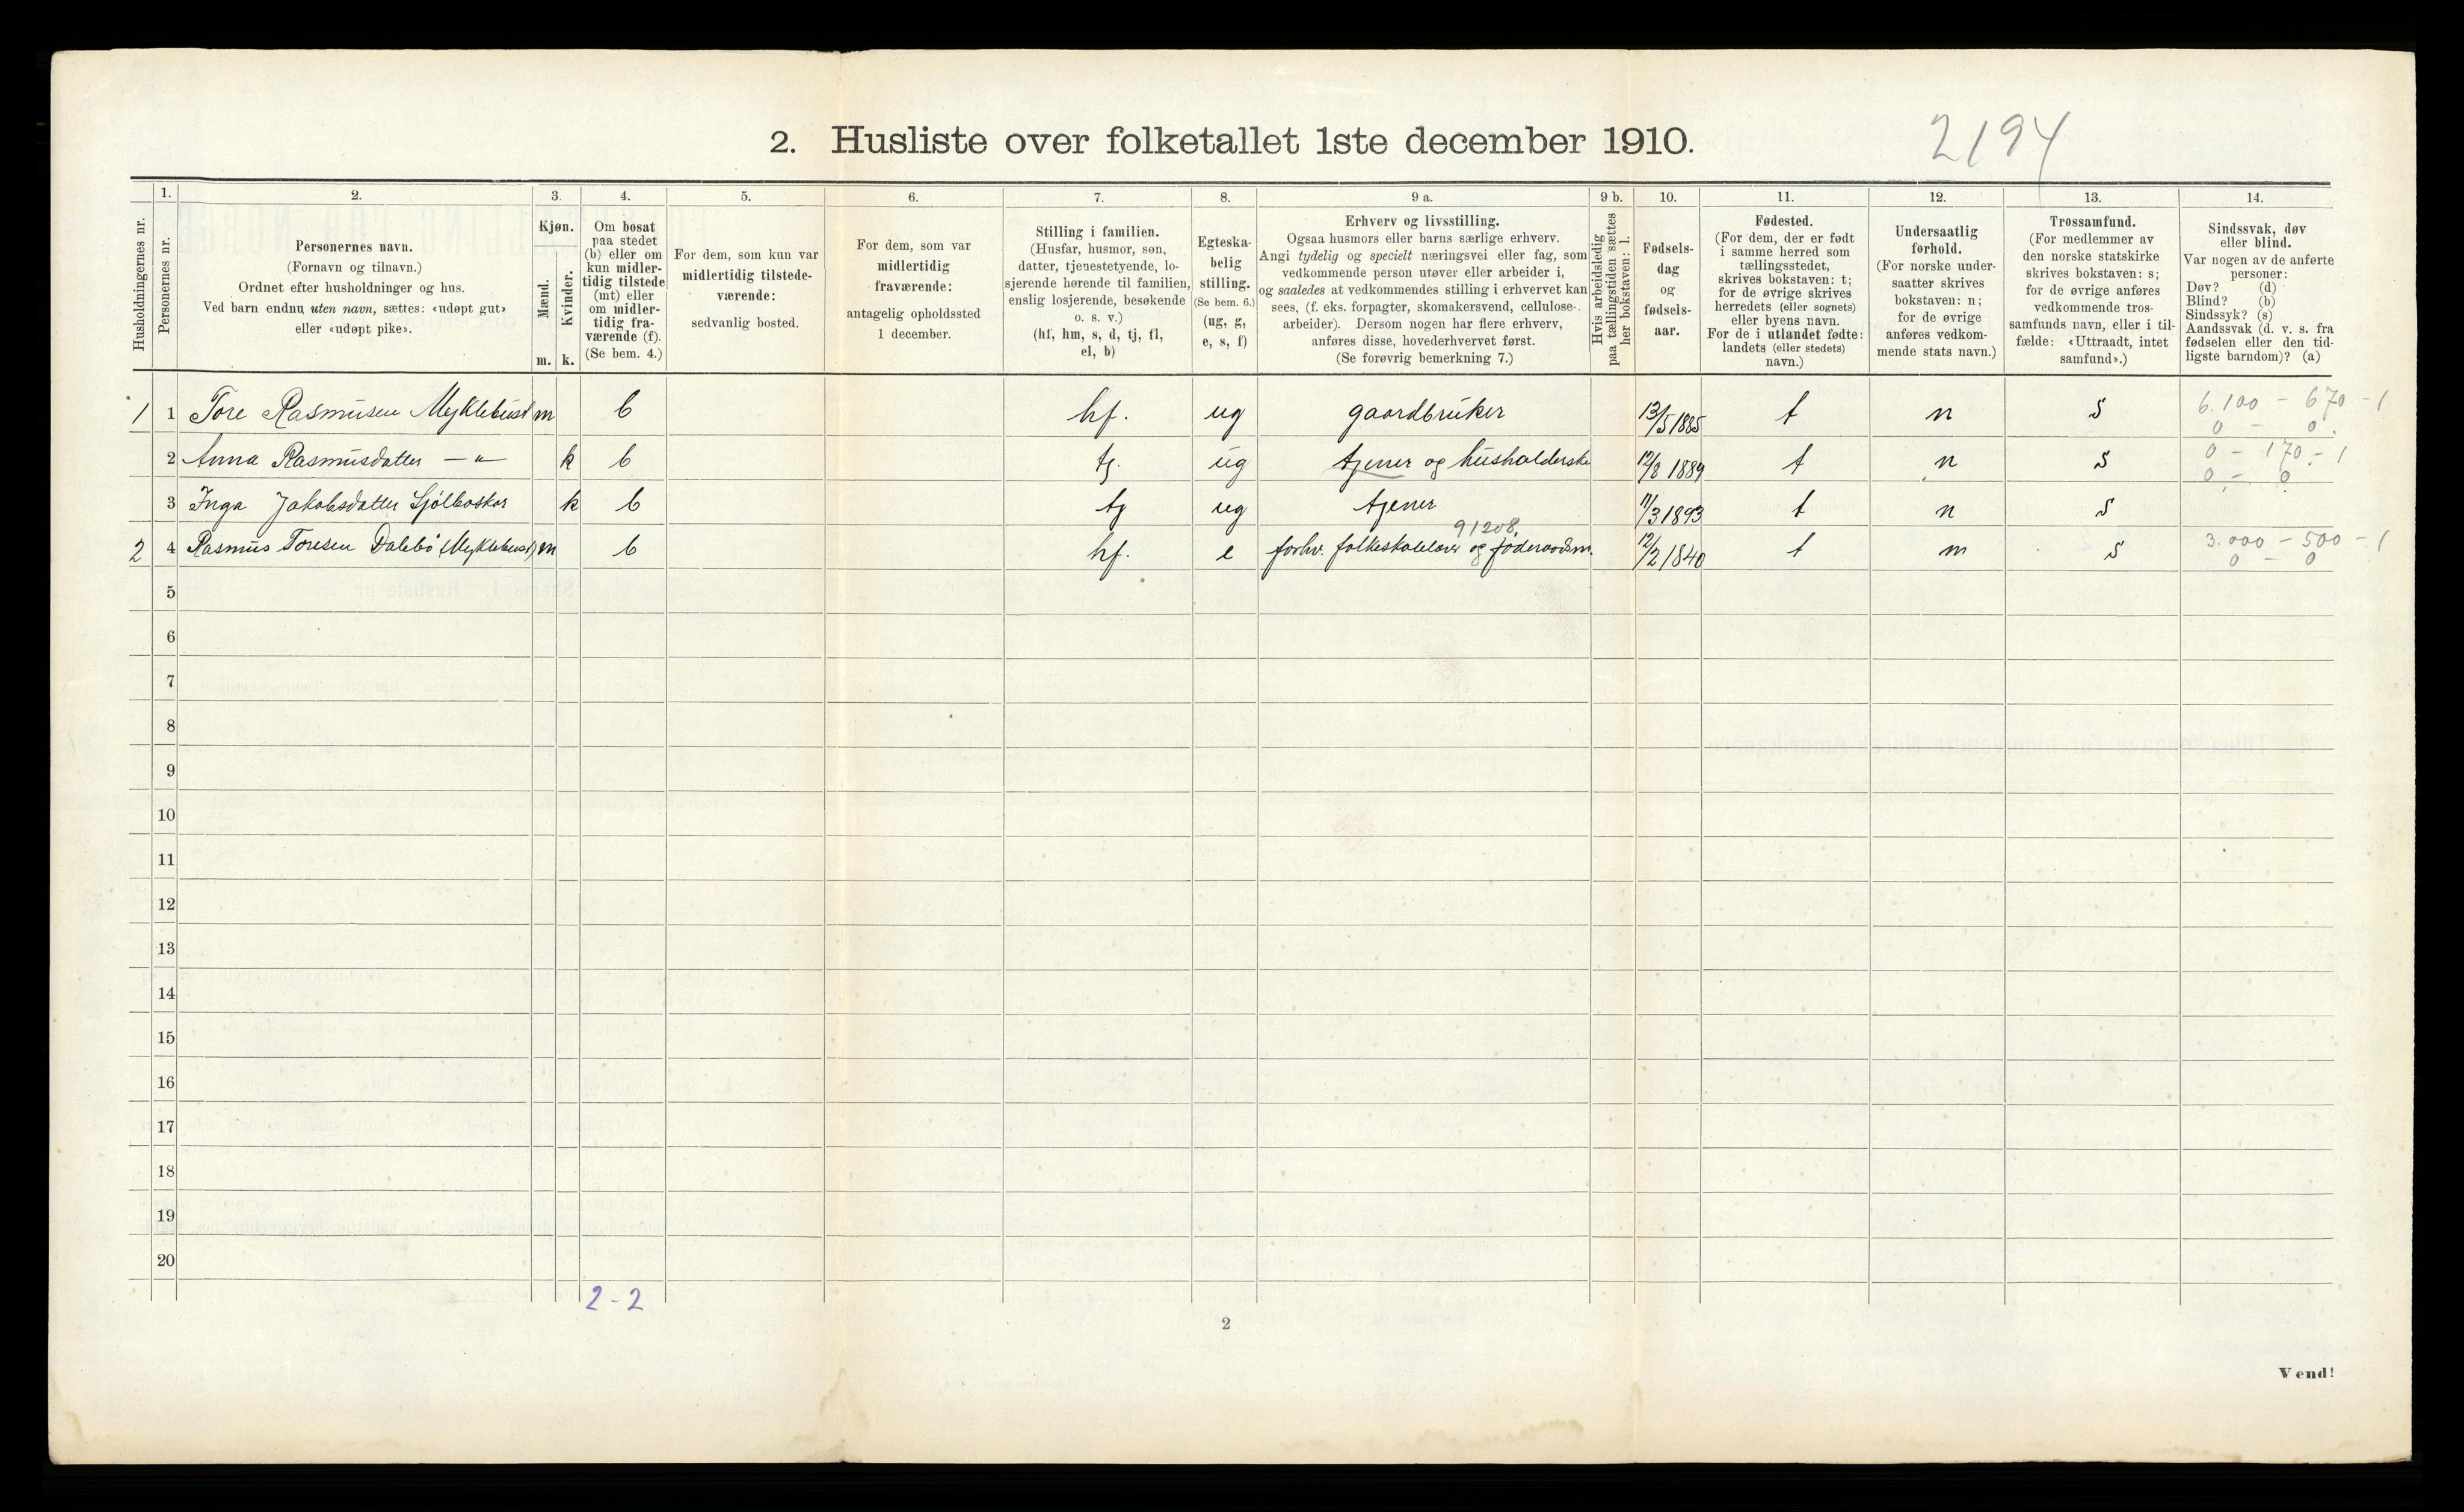 2194
2. Husliste over folketallet 1ste december 1910.
Husholdningernes nr.
1.
Personernes nr.
2.
Personernes navn.
(Fornavn og tilnavn.)
Ordnet efter husholdninger og hus.
Ved barn endnu uten navn, sættes: «udøpt gut»
eller «udøpt pike».
3.
Kjøn.
Mænd.
m.
Kvinder.
k.
4.
Om bosat
paa stedet
(b) eller om
kun midler-
tidig tilstede
(mt) eller
om midler-
tidig fra-
værende (f).
(Se bem. 4.)
5.
For dem, som kun var
midlertidig tilstede-
værende:
sedvanlig bosted.
6.
For dem, som var
midlertidig
fraværende:
antagelig opholdssted
1 december.
7.
Stilling i familien.
(Husfar, husmor, søn,
datter, tjenestetyende, lo-
sjerende hørende til familien,
enslig losjerende, besøkende
o. s. v.)
(hf, hm, s, d, tj, fl,
el, b)
8.
Egteska-
belig
stilling.
(Se bem. 6.)
(ug, g,
e, s, f)
9 a.
Erhverv og livsstilling.
Ogsaa husmors eller barns særlige erhverv.
Angi tydelig og specielt næringsvei eller fag, som
vedkommende person utøver eller arbeider i,
og saaledes at vedkommendes stilling i erhvervet kan
sees, (f. eks. forpagter, skomakersvend, cellulose-
arbeider). Dersom nogen har flere erhverv,
anføres disse, hovederhvervet først.
(Se forøvrig bemerkning 7.)
9 b.
Hvis arbeidsledig
paa tællingstiden sættes
her bokstaven: l.
10.
Fødsels-
dag
og
fødsels-
aar.
11.
Fødested.
(For dem, der er født
i samme herred som
tællingsstedet,
skrives bokstaven: t;
for de øvrige skrives
herredets (eller sognets)
eller byens navn.
For de i utlandet fødte:
landets (eller stedets)
navn.)
12.
Undersaatlig
forhold.
(For norske under-
saatter skrives
bokstaven: n;
for de øvrige
anføres vedkom-
mende stats navn.)
13.
Trossamfund.
(For medlemmer av
den norske statskirke
skrives bokstaven: s;
for de øvrige anføres
vedkommende tros-
samfunds navn, eller i til-
fælde: «Uttraadt, intet
samfund».)
14.
Sindssvak, døv
eller blind.
Var nogen av de anførte
personer:
Døv? (d)
Blind? (b)
Sindssyk? (s)
Aandssvak (d. v. s. fra
fødselen eller den tid-
ligste barndom)? (a)
1 1 Tore Rasmusen Myklebust m b hf. ug gaardbruker 13/5 1885 t n s 6.100 - 670 - 1
0 - 0.
2 Anna Rasmusdatter — " — k b tj. ug tjener og husholderske 12/8 1889 t n s 0 - 170 - 1
0 - 0
3 Inga Jakobsdatter k b tj ug tjener 11/3 1893 t n s
91208.
2 4 Rasmus Toresen Dalebø (Myklebust) m b hf. e forhv. folkeskolelærer og føderaadsm. 12/2 1840 t n s 3.000 - 500 - 1
0 - 0
5
6
7
8
9
10
11
12
13
14
15
16
17
18
19
20
2-2
2
Vend!